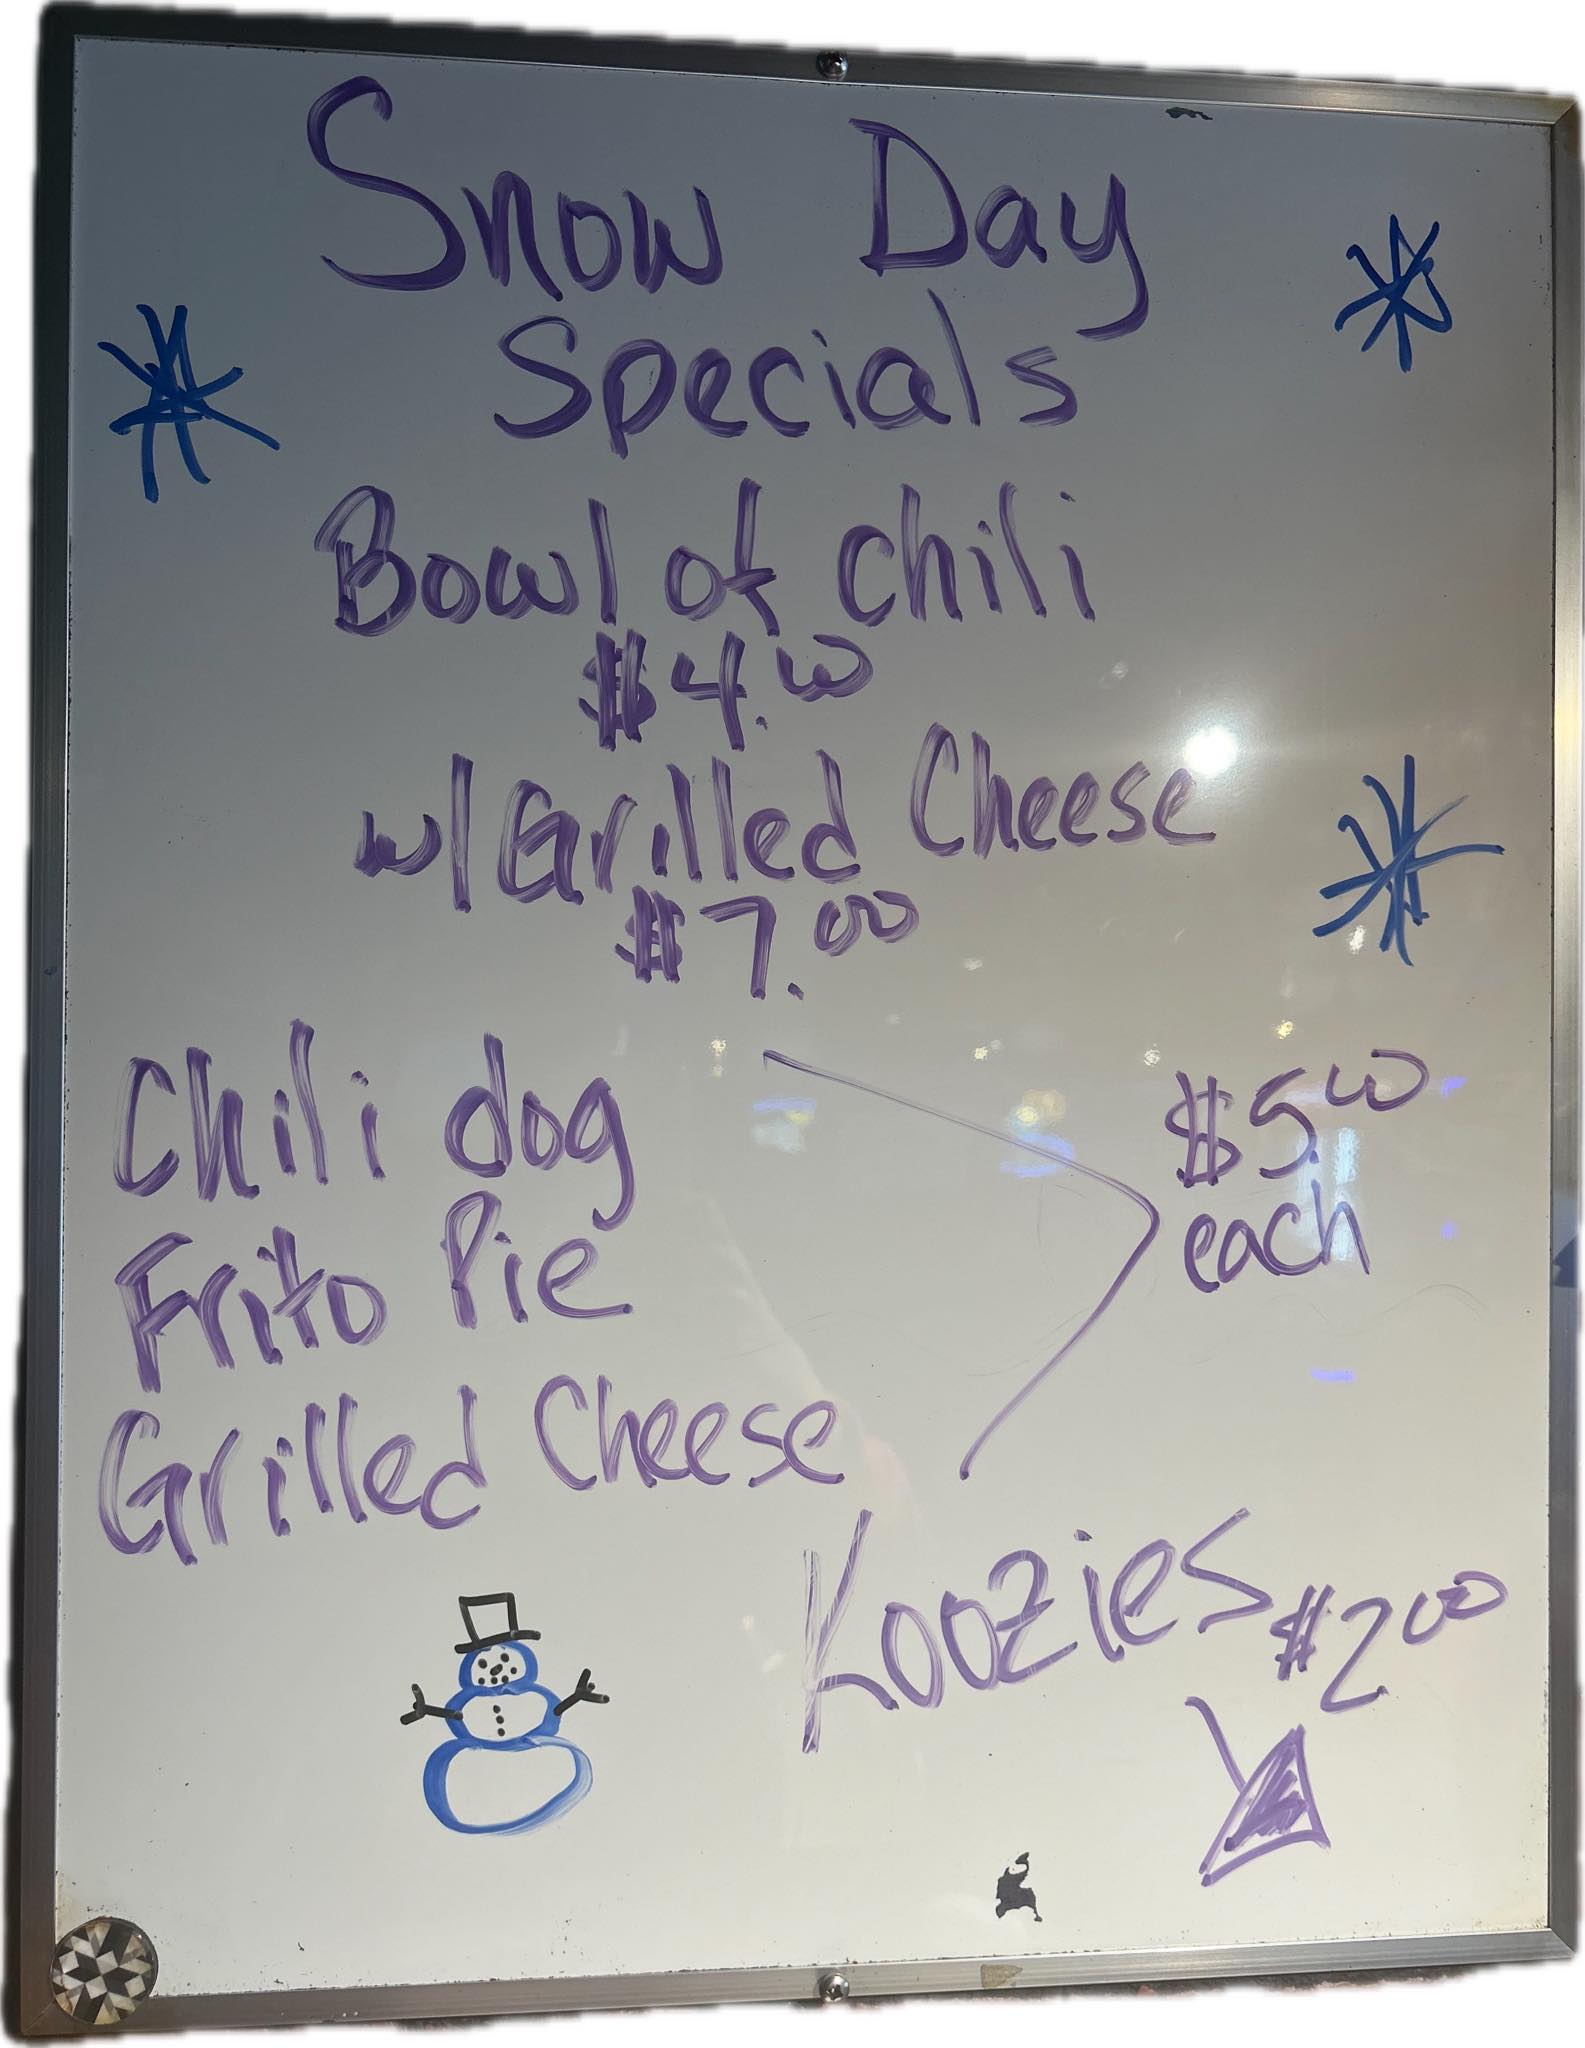 Snow Day
Specials
Bowl of chili
$4.00
w/Grilled Cheese
$7.00
Chili dog
Frito Pie
Grilled Cheese
$5.00
each
Koozies $2.00